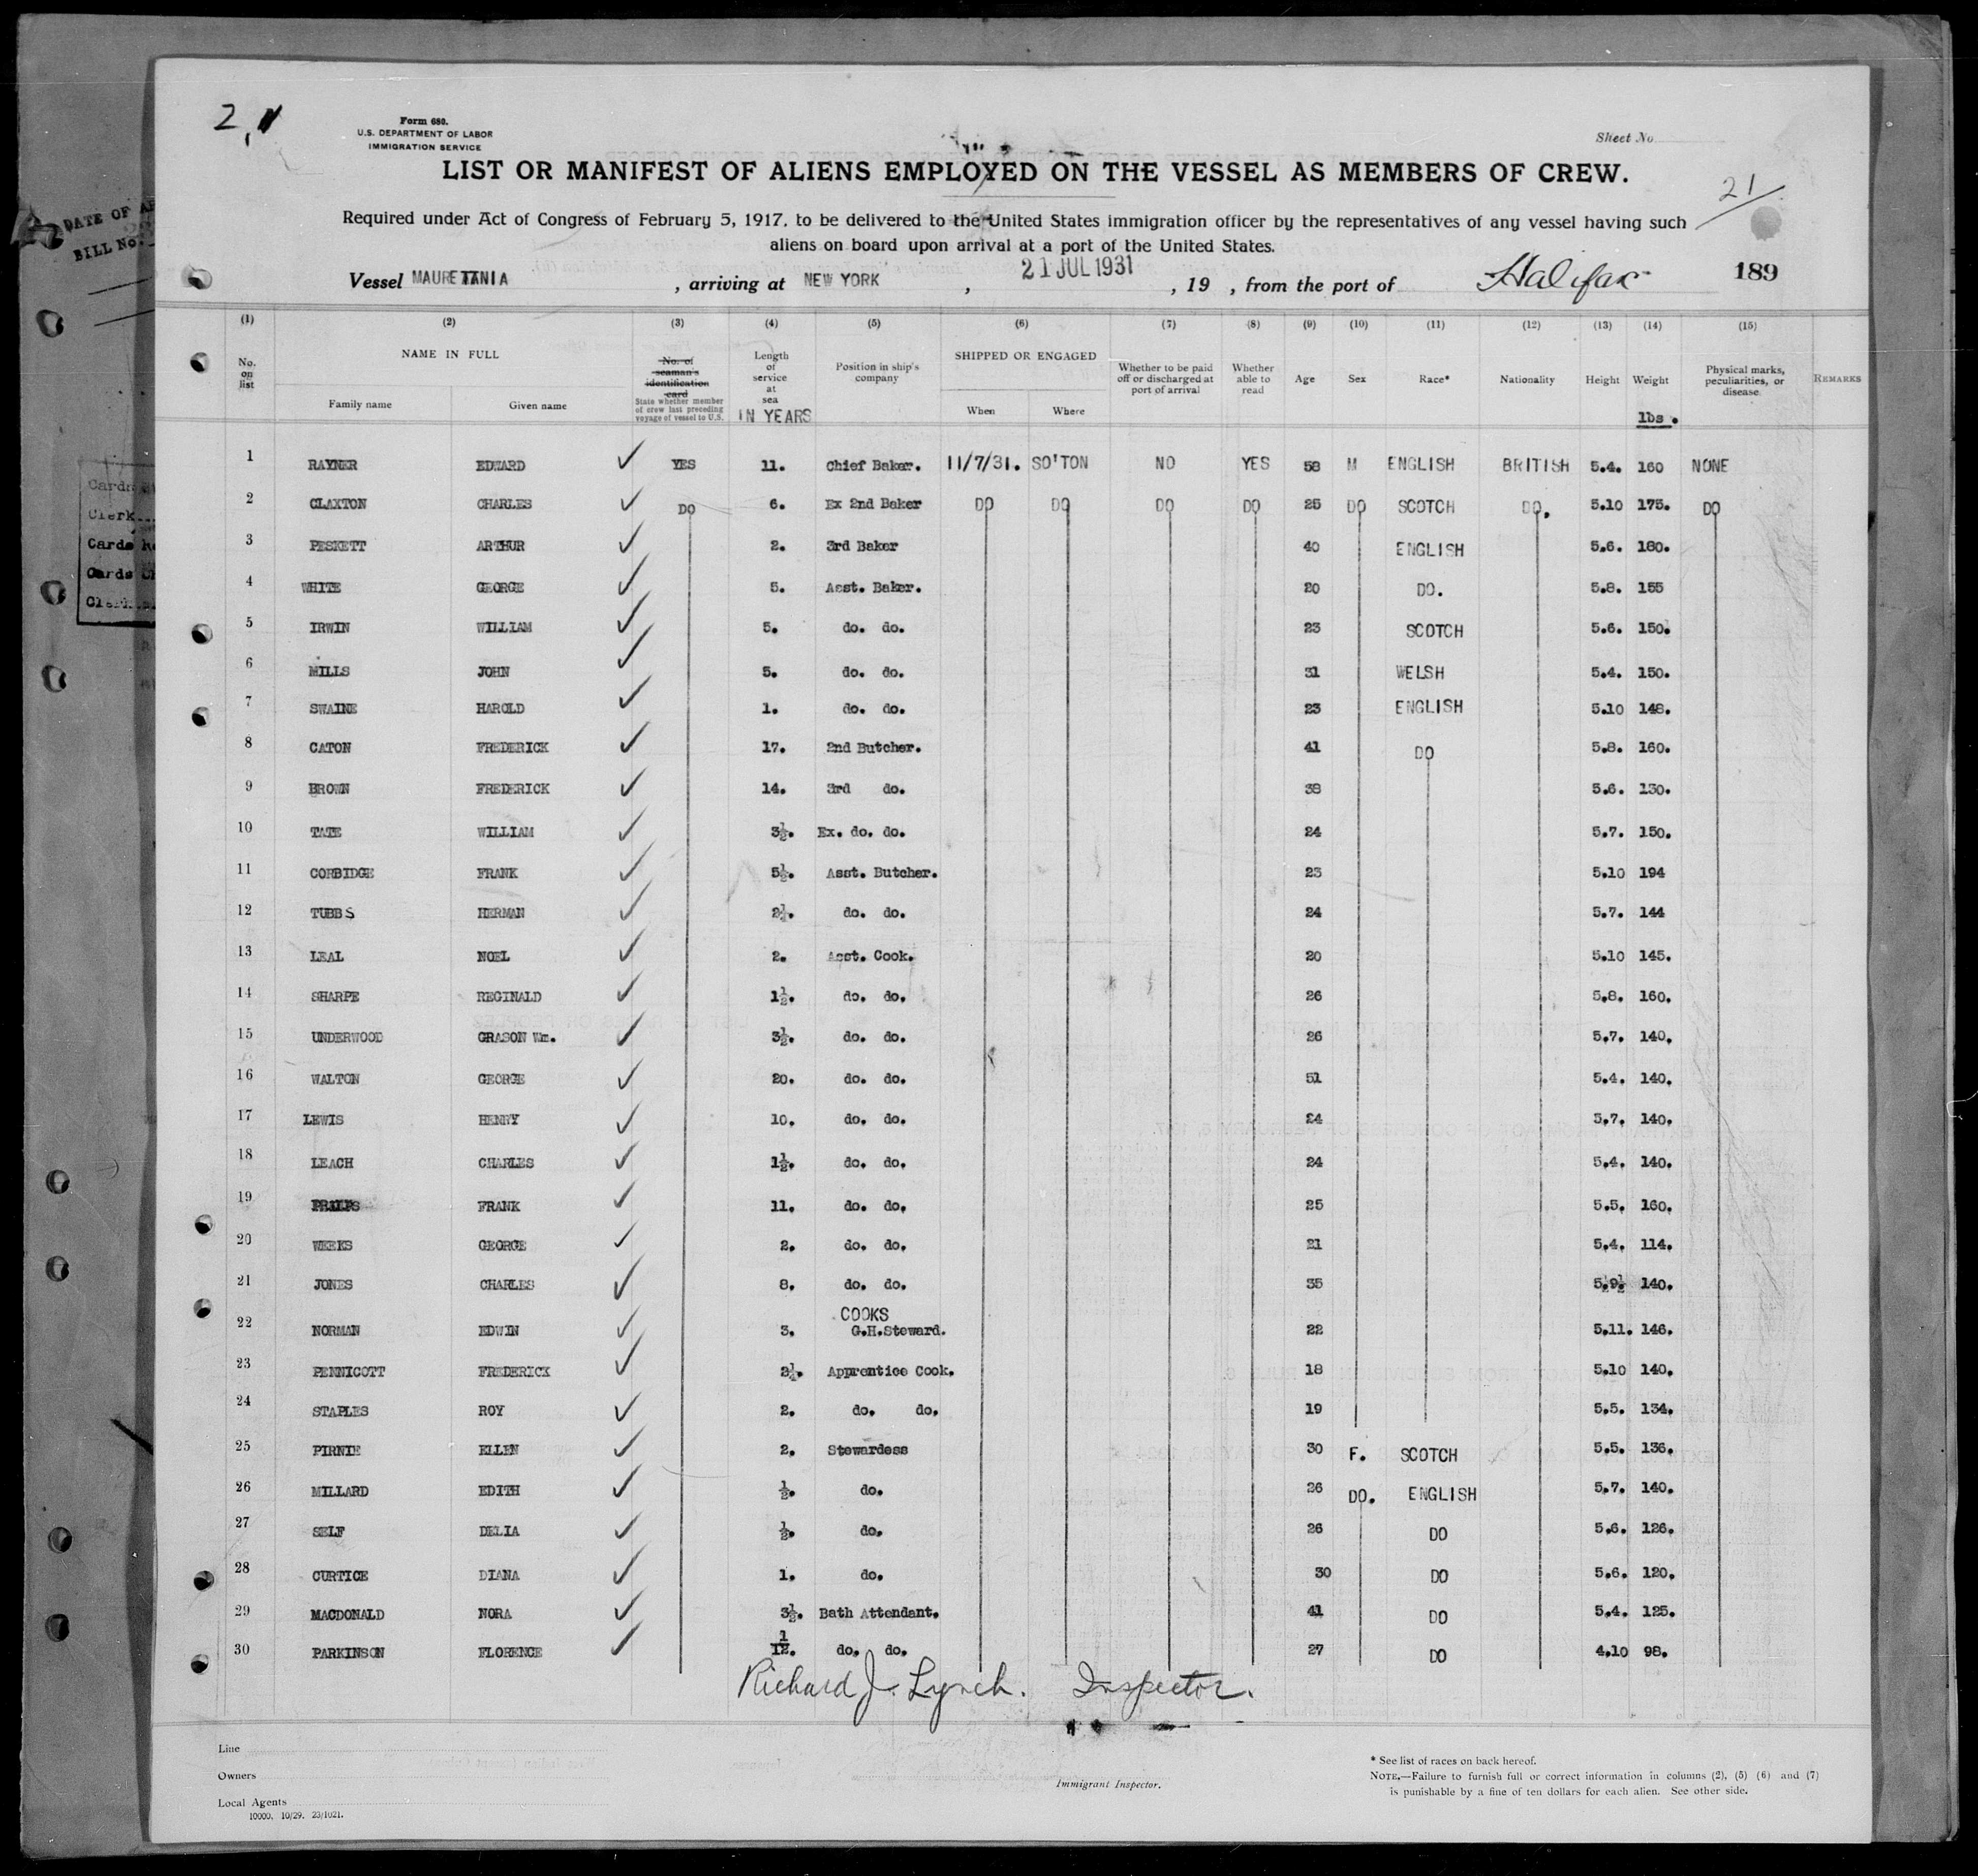 2,1
Form 680.
U.S. DEPARTMENT OF LABOR
IMMIGRATION SERVICE
Sheet No
LIST OR MANIFEST OF ALIENS EMPLOYED ON THE VESSEL AS MEMBERS OF CREW.
21
Required under Act of Congress of February 5, 1917, to be delivered to the United States immigration officer by the representatives of any vessel having such
aliens on board upon arrival at a port of the United States.
DATE OF
BILL No.
Vessel MAURETANIA , arriving at NEW YORK , 21 JUL 1931 , 19 , from the port of Halifax 189
(1) (2) (3) (4) (5) (6) (7) (8) (9) (10) (11) (12) (13) (14) (15)
No. on list NAME IN FULL Family name Given name No. of seaman's identification card State whether member of crew last preceding voyage of vessel to U.S. Length of service at sea IN YEARS Position in ship's company SHIPPED OR ENGAGED When Where Whether to be paid off or discharged at port of arrival Whether able to read Age Sex Race* Nationality Height Weight lbs. Physical marks, peculiarities, or disease REMARKS
1 RAYNER EDWARD ✓ YES 11. Chief Baker. 11/7/31. SO'TON NO YES 58 M ENGLISH BRITISH 5.4. 160 NONE
2 CLAXTON CHARLES ✓ DO 6. Ex 2nd Baker DO DO DO DO 25 DO SCOTCH DO. 5.10 175. DO
3 PESKETT ARTHUR ✓ 2. 3rd Baker 40 ENGLISH 5.6. 180.
4 WHITE GEORGE ✓ 5. Asst. Baker. 20 DO. 5.8. 155
5 IRWIN WILLIAM ✓ 5. do. do. 23 SCOTCH 5.6. 150.
6 MILLS JOHN ✓ 5. do. do. 31 WELSH 5.4. 150.
7 SWAINE HAROLD ✓ 1. do. do. 23 ENGLISH 5.10 148.
8 CATON FREDERICK ✓ 17. 2nd Butcher. 41 DO 5.8. 160.
9 BROWN FREDERICK ✓ 14. 3rd do. 38 5.6. 130.
10 TATE WILLIAM ✓ 3½. Ex. do. do. 24 5.7. 150.
11 CORBIDGE FRANK ✓ 5½. Asst. Butcher. 23 5.10 194
12 TUBBS HERMAN ✓ 2¼. do. do. 24 5.7. 144
13 LEAL NOEL ✓ 2. Asst. Cook. 20 5.10 145.
14 SHARPE REGINALD ✓ 1½. do. do. 26 5.8. 160.
15 UNDERWOOD GRASON Wm. ✓ 3½. do. do. 26 5.7. 140.
16 WALTON GEORGE ✓ 20. do. do. 51 5.4. 140.
17 LEWIS HENRY ✓ 10. do. do. 24 5.7. 140.
18 LEACH CHARLES ✓ 1½. do. do. 24 5.4. 140.
19 FRANK ✓ 11. do. do. 25 5.5. 160.
20 WEEKS GEORGE ✓ 2. do. do. 21 5.4. 114.
21 JONES CHARLES ✓ 8. do. do. 35 5.9½ 140.
22 NORMAN EDWIN ✓ 3. COOKS G.H.Steward. 22 5.11. 146.
23 PENNICOTT FREDERICK ✓ 2¼. Apprentice Cook. 18 5.10 140.
24 STAPLES ROY ✓ 2. do. do. 19 5.5. 134.
25 PIRNIE ELLEN ✓ 2. Stewardess 30 F. SCOTCH 5.5. 136.
26 MILLARD EDITH ✓ ½. do. 26 DO. ENGLISH 5.7. 140.
27 SELF DELIA ✓ ½. do. 26 DO 5.6. 126.
28 CURTICE DIANA ✓ 1. do. 30 DO 5.6. 120.
29 MACDONALD NORA ✓ 3½. Bath Attendant. 41 DO 5.4. 125.
30 PARKINSON FLORENCE ✓ 1/12. do. do. 27 DO 4.10 98.
Cards
Clerk
Cards
Cards
Clerk
Richard J. Lynch. Inspector.
Line
Owners
Local Agents
10000, 10/29. 23/1021.
Immigrant Inspector.
* See list of races on back hereof.
NOTE.—Failure to furnish full or correct information in columns (2), (5) (6) and (7)
is punishable by a fine of ten dollars for each alien. See other side.